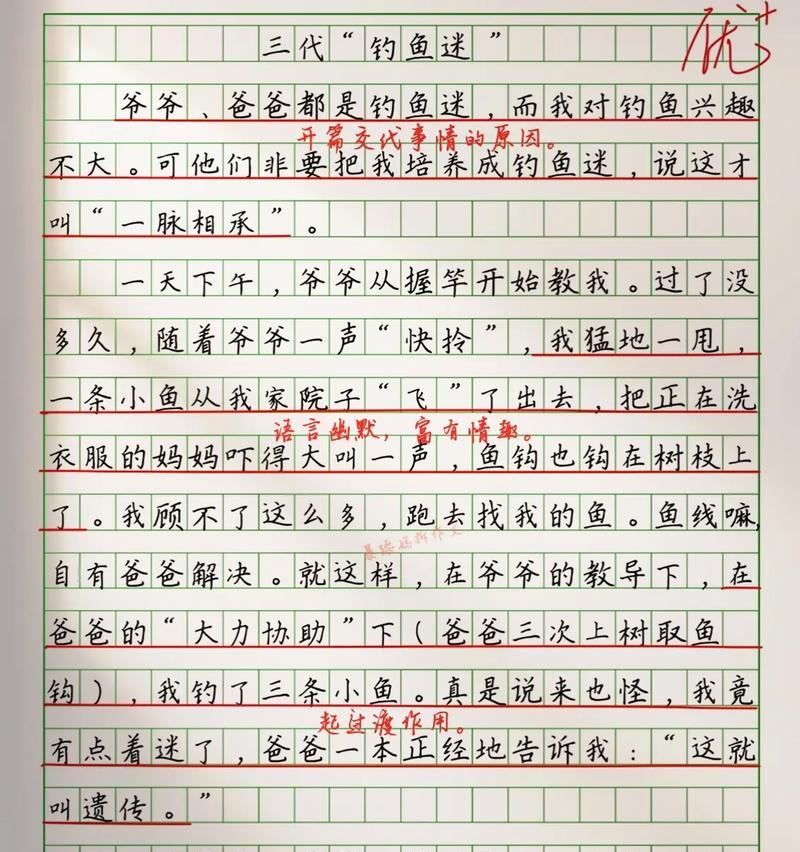 三代“钓鱼迷”
优+
爷爷、爸爸都是钓鱼迷，而我对钓鱼兴趣
开篇交代事情的原因。
不大。可他们非要把我培养成钓鱼迷，说这才
叫“一脉相承”。
一天下午，爷爷从握竿开始教我。过了没
多久，随着爷爷一声“快拎”，我猛地一甩，
一条小鱼从我家院子“飞”了出去，把正在洗
语言幽默，富有情趣。
衣服的妈妈吓得大叫一声，鱼钩也钩在树枝上
了。我顾不了这么多，跑去找我的鱼。鱼线嘛，
自有爸爸解决。就这样，在爷爷的教导下，在
爸爸的“大力协助”下（爸爸三次上树取鱼
钩），我钓了三条小鱼。真是说来也怪，我竟
起过渡作用。
有点着迷了，爸爸一本正经地告诉我：“这就
叫遗传。”